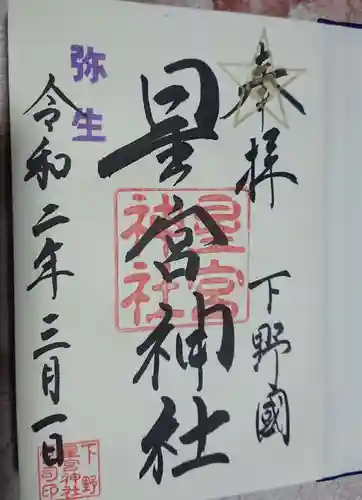 奉拝
下野國
星宮神社
星宮
神社
弥生
令和二年三月一日
下野
星宮神社